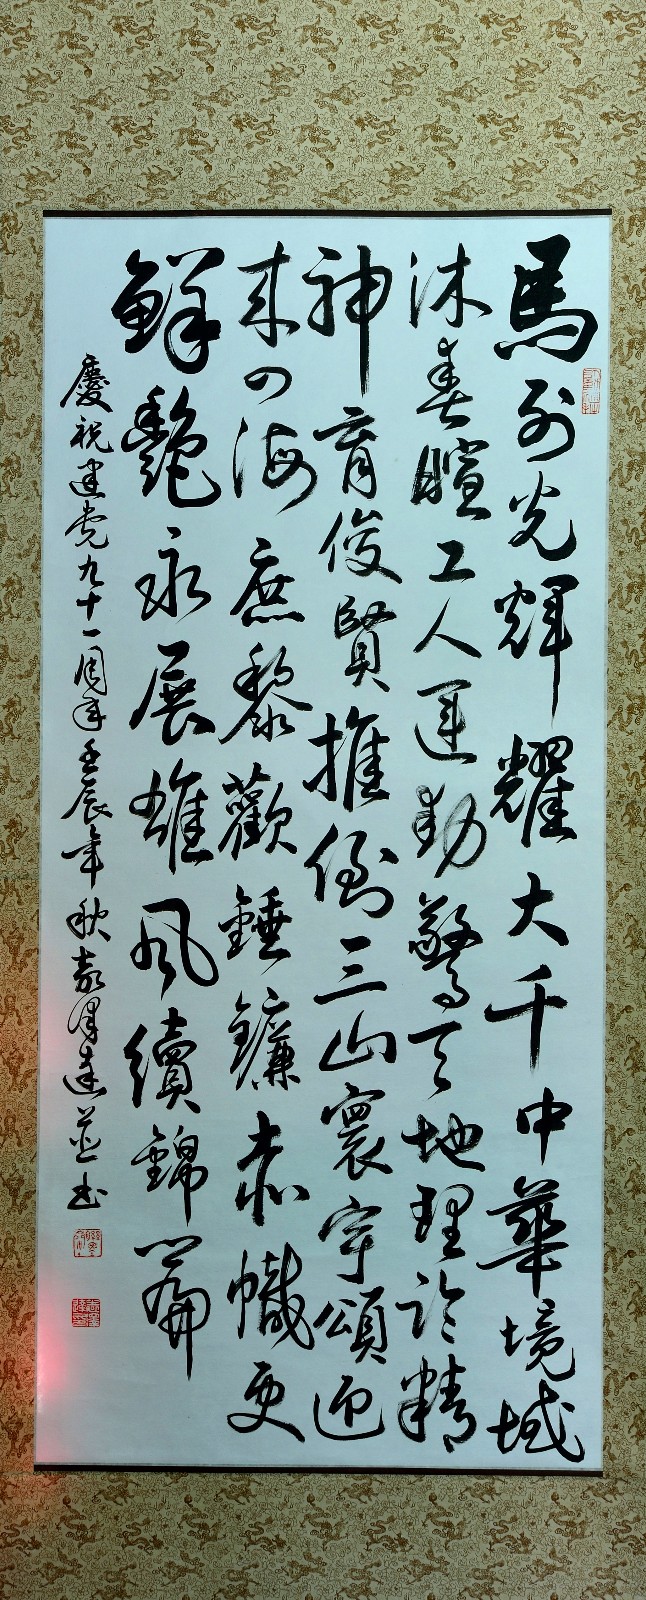 馬列光輝耀大千中華境域
沐春暄工人運動驚天地理論精
神育俊賢推倒三山寰宇頌迎
来四海庶黎歡錘鐮赤幟更
鮮艷永展雄風續錦篇
慶祝建党九十一周年壬辰年秋並书